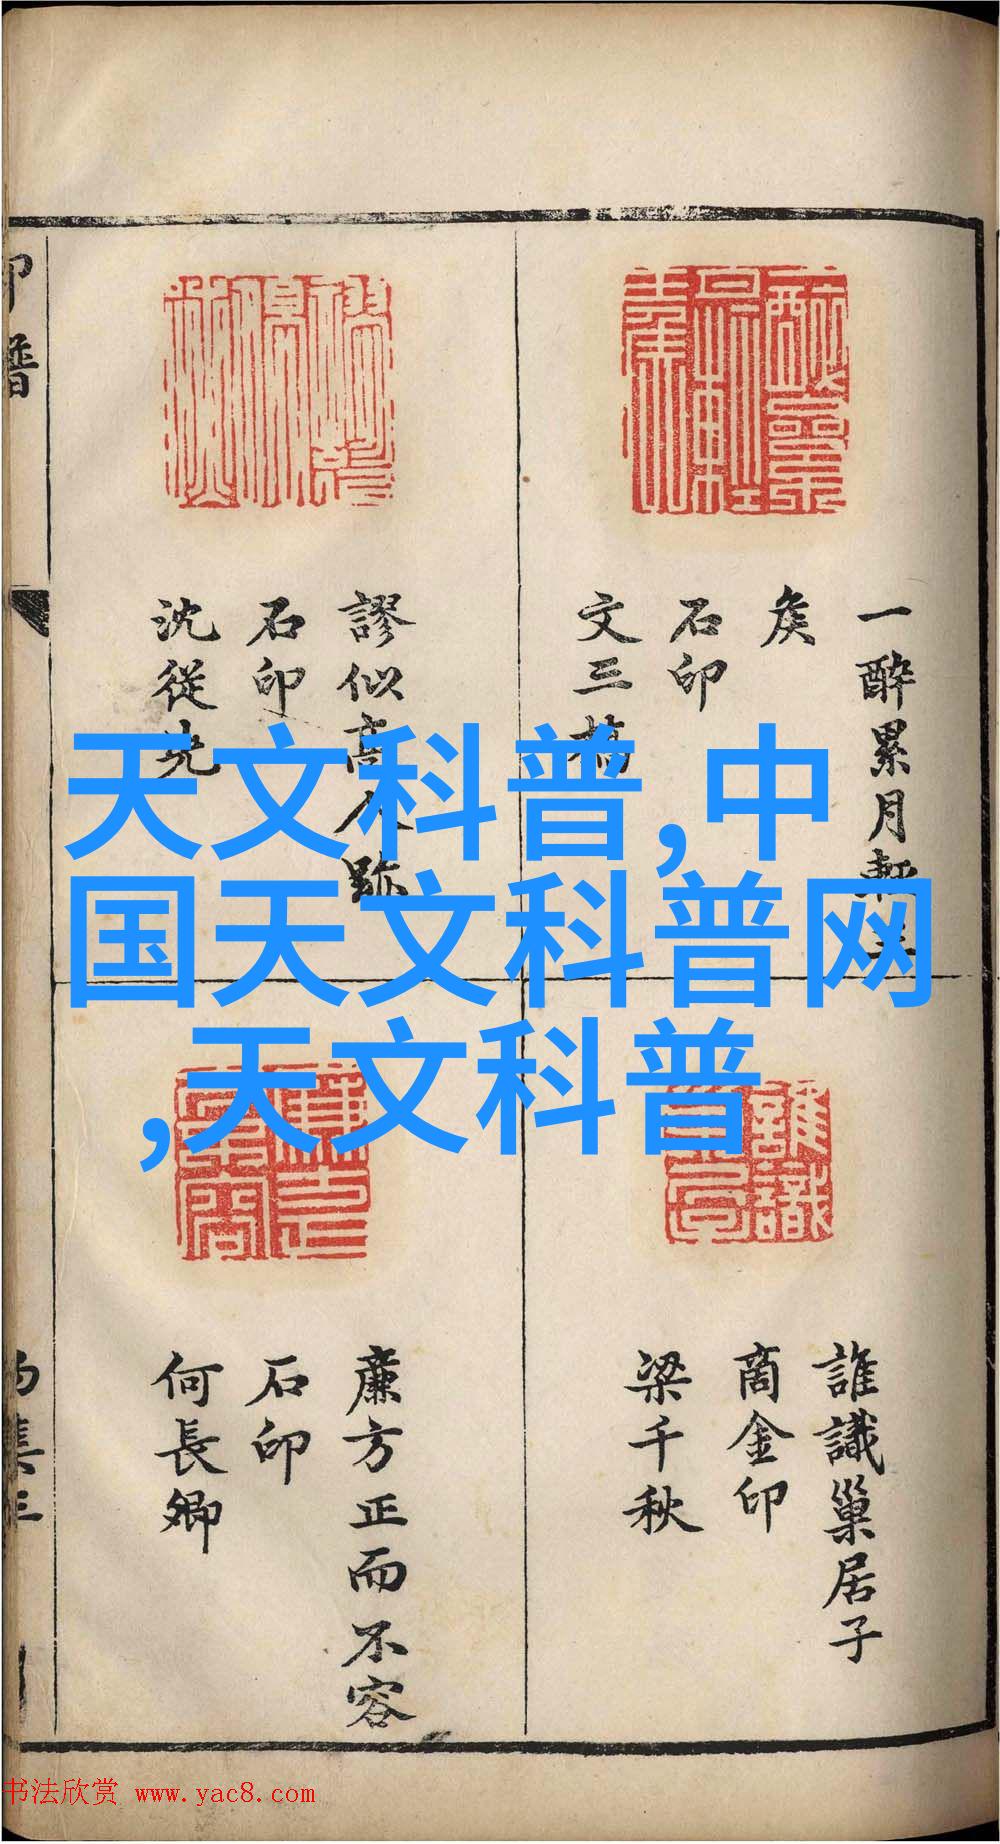 天文科普,中
国天文科普网
,天文科普
一醉累月輕王
矦
石印
文三橋
謬似高人跡
石印
沈從先
誰識巢居子
商金印
梁千秋
廉方正而不容
石印
何長卿
印譜
书法欣赏 www.yac8.com